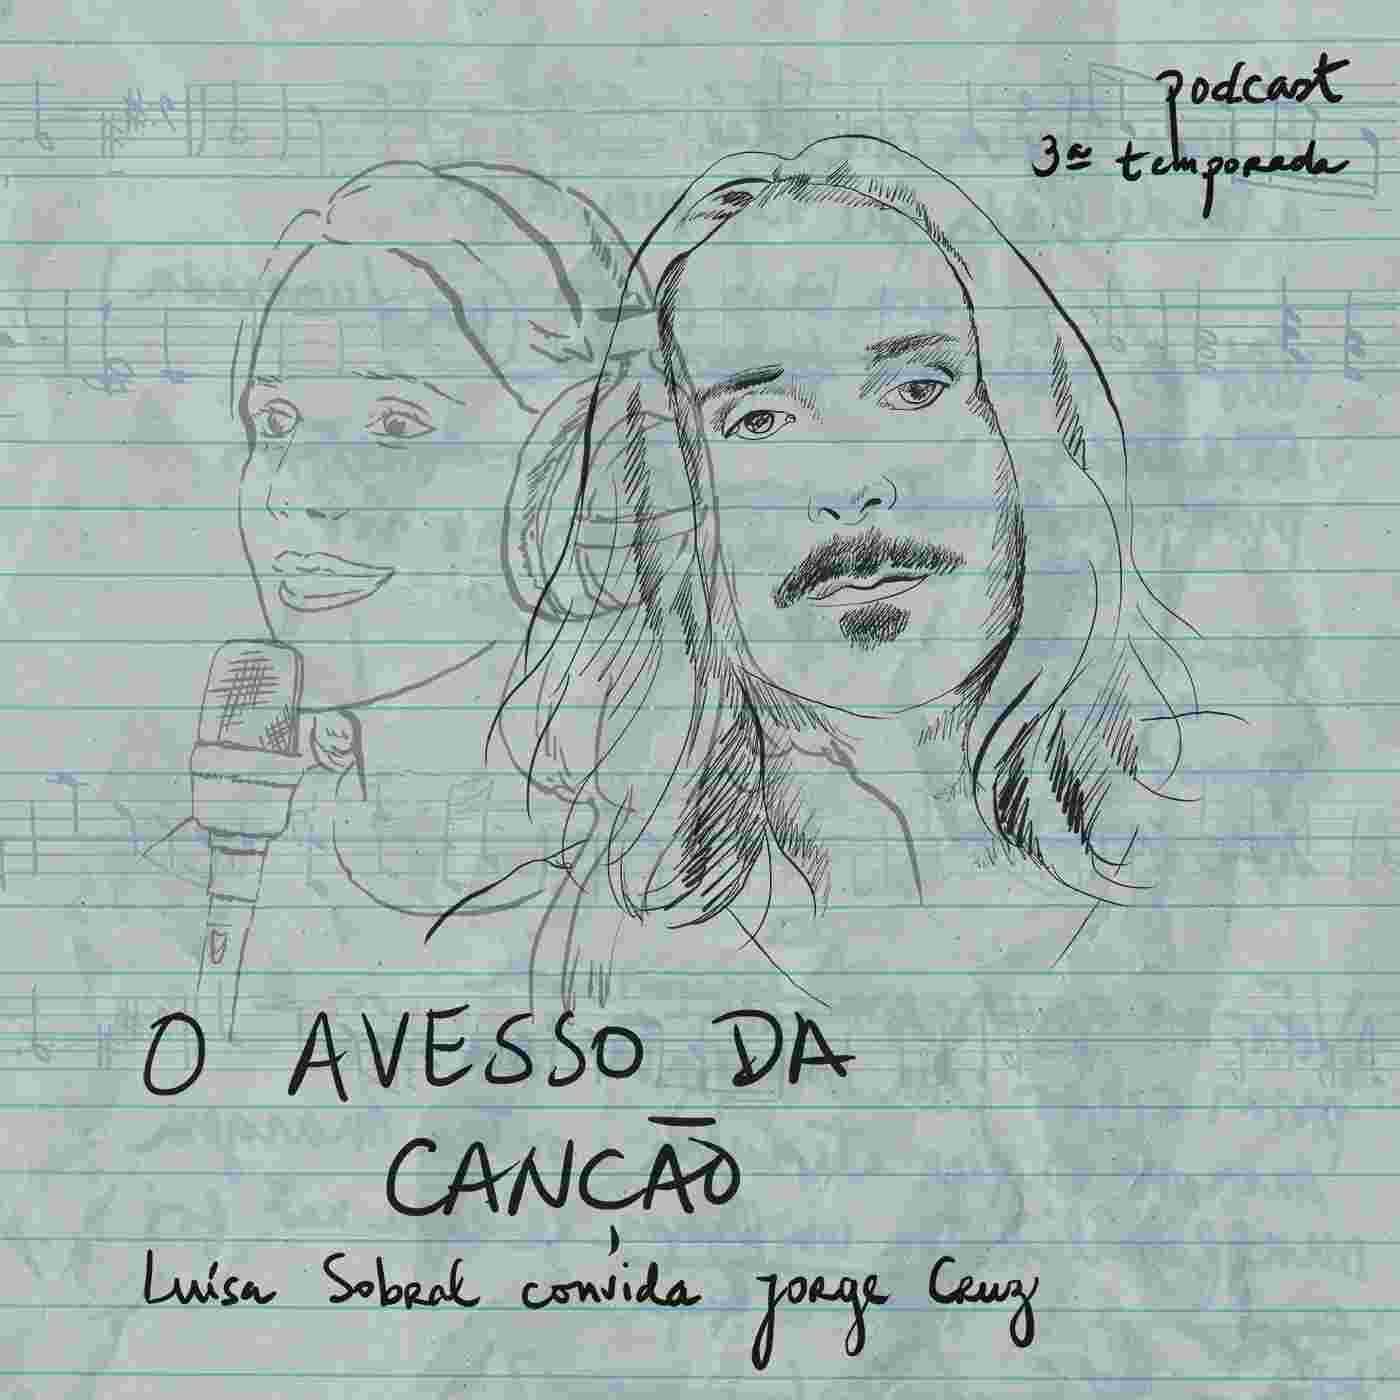 podcast
3ª temporada
O AVESSO DA
CANÇÃO
Luísa Sobral convida Jorge Cruz